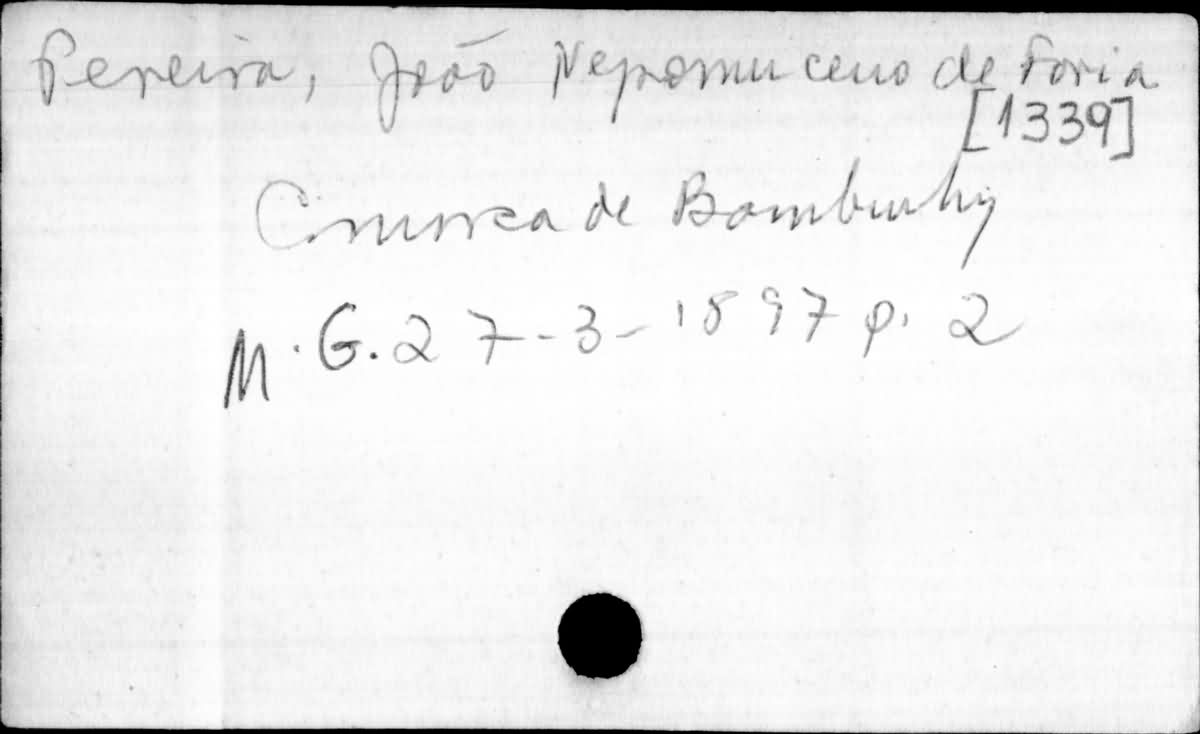 Pereira, João Nepomuceno de Faria
[1339]
Comarca de Bambuhy
M. G. 27-3-1897 p. 2